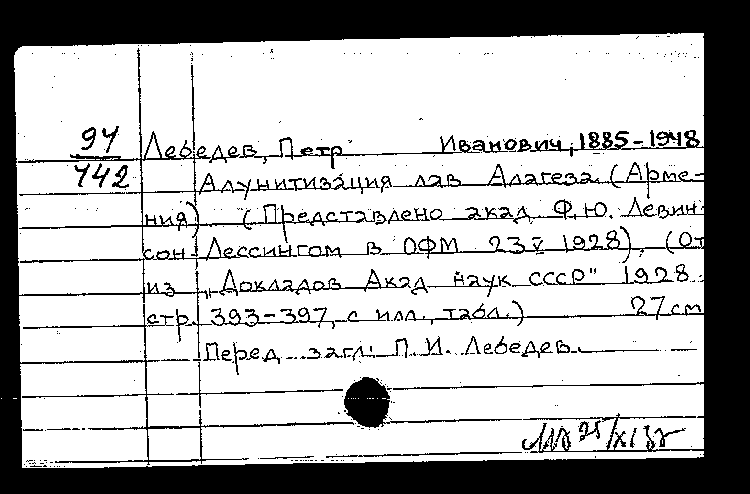 94 Лебедев, Петр Иванович, 1885-1948
442 Алунитизация лав Алагеза. (Арме-
ния) (Представлено акад Ф.Ю. Левин-
сон-Лессингом в ОФМ 23 V 1928), (От
из „Докладов Акад наук СССР" 1928.
стр. 393-397, с илл., табл.) 27 см
Перед загл: П.И. Лебедев.